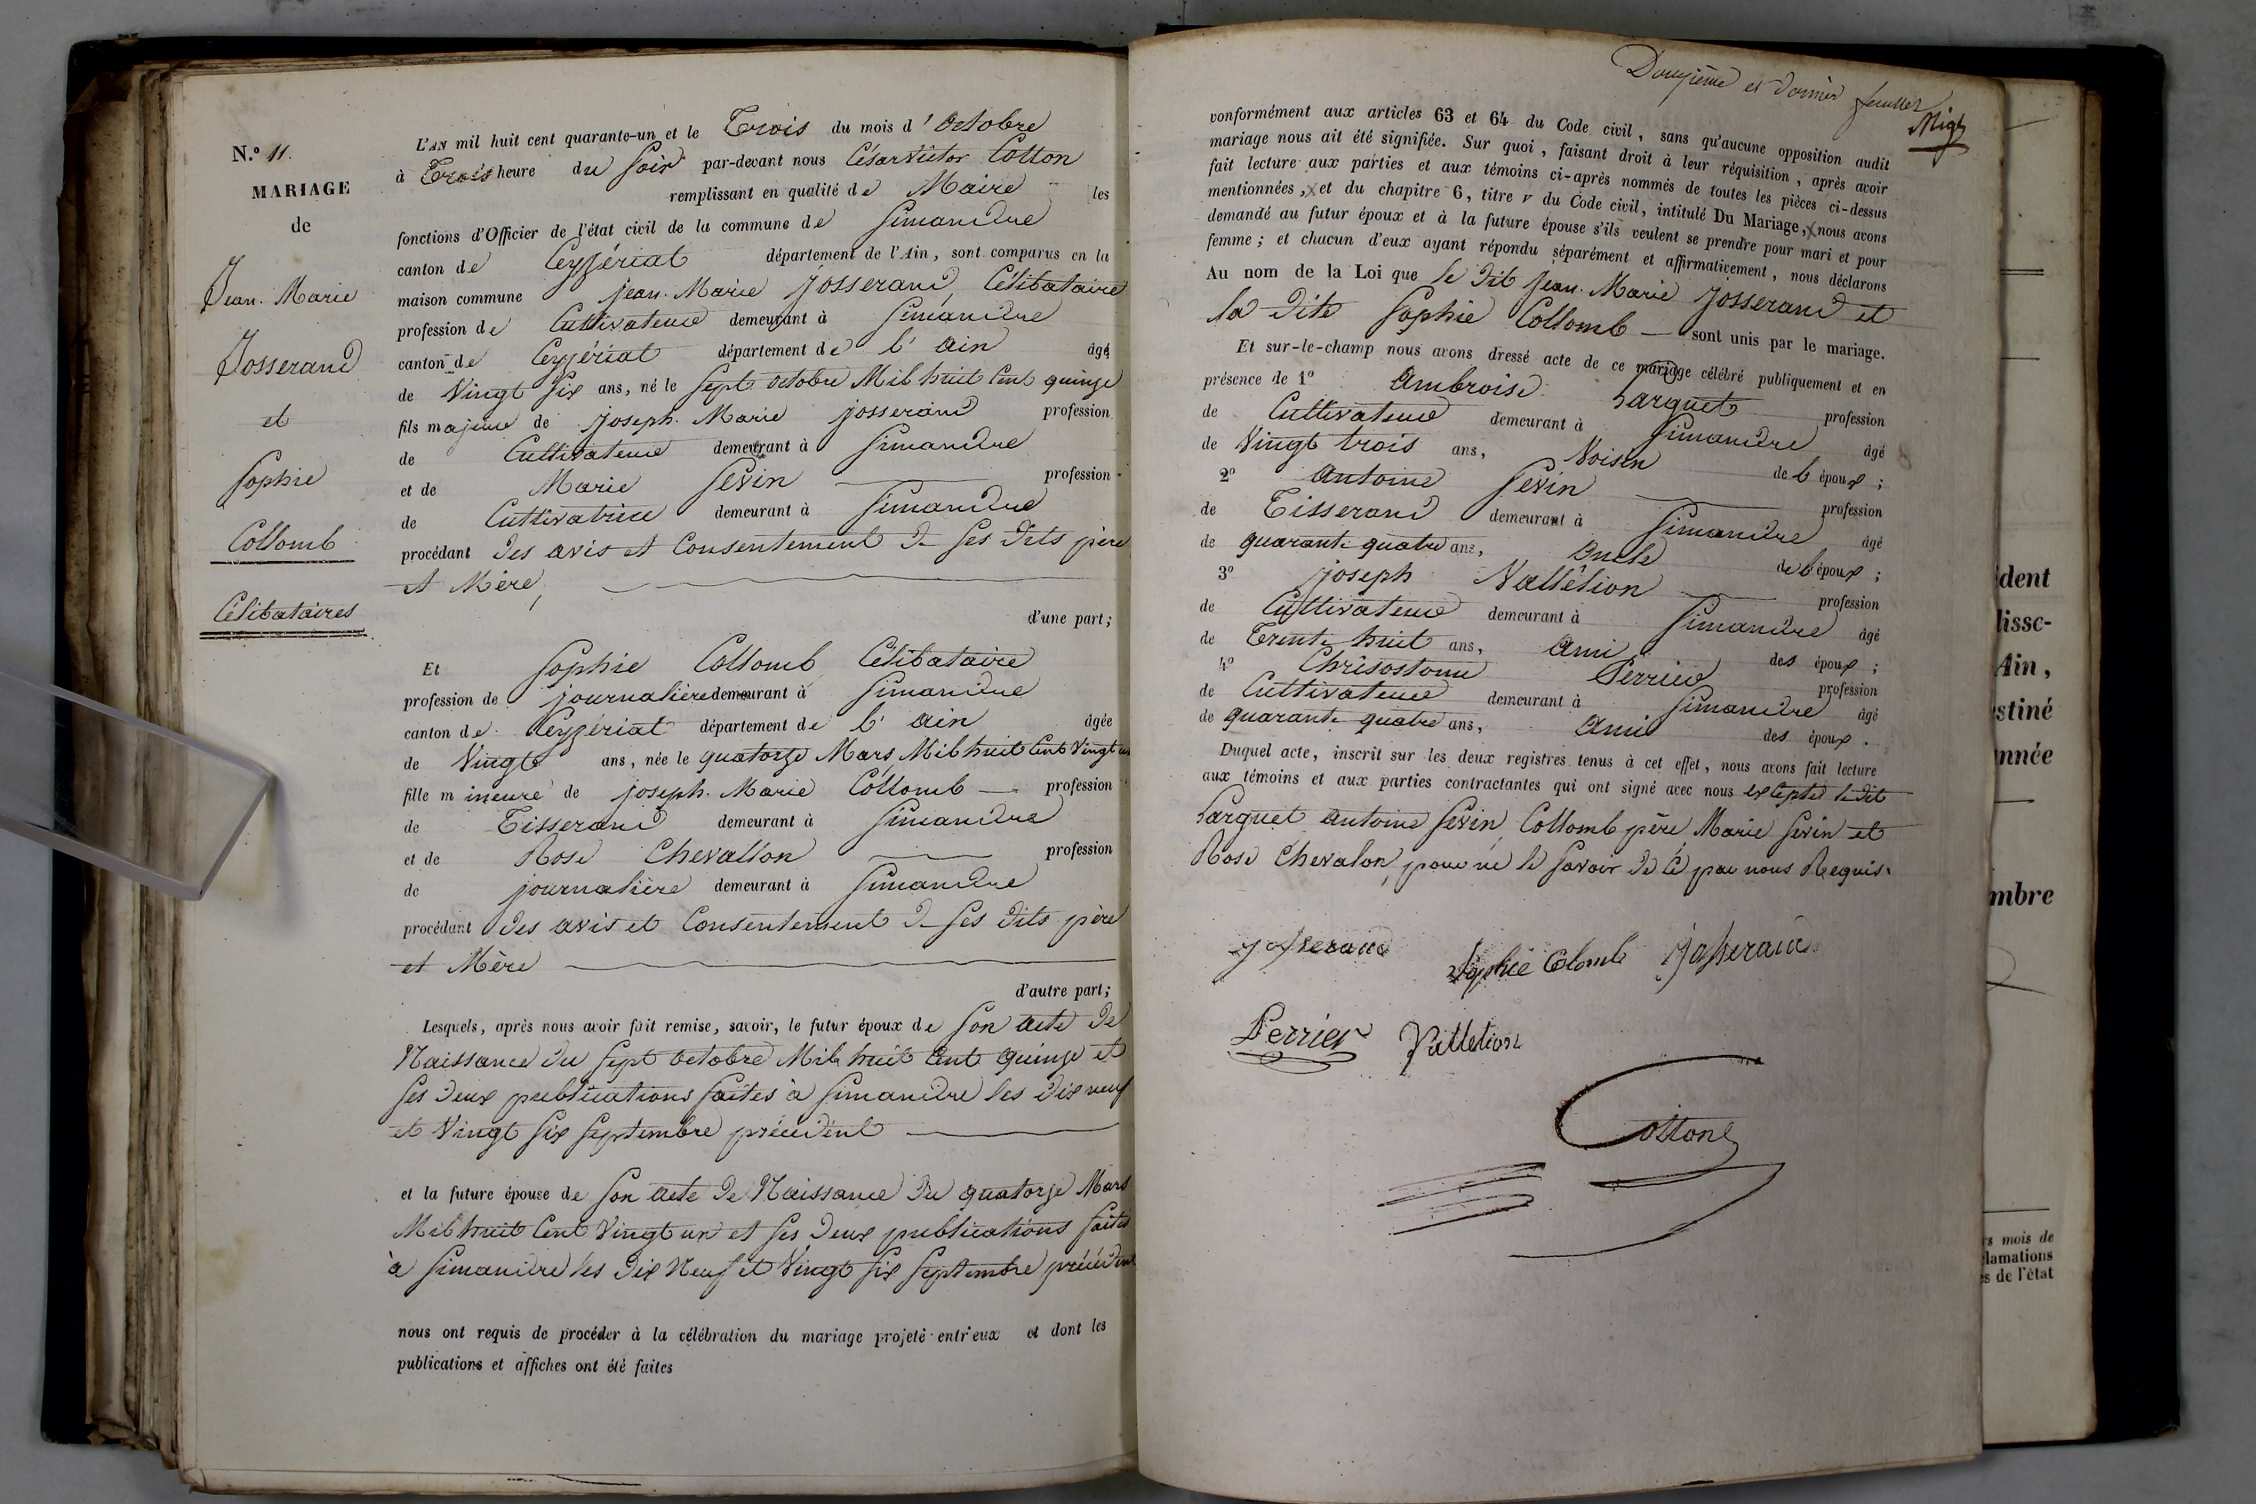 N.º 11.
MARIAGE
de
Jean. Marie
Josserand
et
Sophie
Collomb
Célibataires
L'AN mil huit cent quarante-un et le Trois du mois d'Octobre
à Trois heure du Soir par-devant nous César Victor Cotton
remplissant en qualité de Maire les
fonctions d'Officier de l'état civil de la commune de Simandre
canton de Ceyzériat département de l'Ain, sont comparus en la
maison commune Jean. Marie Josserand, Célibataire
profession de Cultivateur demeurant à Simandre
canton de Ceyzériat département de l'ain âgé
de Vingt Six ans, né le Sept Octobre Mil huit Cent quinze
fils majeur de Joseph. Marie Josserand profession
de Cultivateur demeurant à Simandre
et de Marie Sevin profession
de Cultivatrice demeurant à Simandre
procédant des avis et Consentement de Ses dits père
et Mère,
d'une part;
Et Sophie Collomb, Célibataire
profession de journalière demeurant à Simandre
canton de Ceyzériat département de l'ain âgée
de Vingt ans, née le quatorze Mars Mil huit Cent Vingt un
fille mineure de Joseph. Marie Collomb profession
de Tisserand demeurant à Simandre
et de Rose Chevallon profession
de journalière demeurant à Simandre
procédant des avis et Consentement de Ses dits père
et Mère
d'autre part;
Lesquels, après nous avoir fait remise, savoir, le futur époux de Son acte de
Naissance du Sept Octobre Mil huit Cent quinze et
Ses deux publications faites à Simandre les dix neuf
et Vingt Six Septembre précédent
et la future épouse de Son acte de Naissance du quatorze Mars
Mil huit Cent Vingt un et Ses deux publications faites
à Simandre les dix Neuf et Vingt Six Septembre précédent
nous ont requis de procéder à la célébration du mariage projeté entr'eux et dont les
publications et affiches ont été faites
Douzième et dernier feuillet
conformément aux articles 63 et 64 du Code civil, sans qu'aucune opposition audit
mariage nous ait été signifiée. Sur quoi, faisant droit à leur réquisition, après avoir
fait lecture aux parties et aux témoins ci-après nommés de toutes les pièces ci-dessus
mentionnées, et du chapitre 6, titre v du Code civil, intitulé Du Mariage, nous avons
demandé au futur époux et à la future épouse s'ils veulent se prendre pour mari et pour
femme; et chacun d'eux ayant répondu séparément et affirmativement, nous déclarons
Au nom de la Loi que le dit Jean. Marie Josserand et
la dite Sophie Collomb sont unis par le mariage.
Et sur-le-champ nous avons dressé acte de ce mariage célébré publiquement et en
présence de 1º Ambroise Larguet profession
de Cultivateur demeurant à Simandre âgé
de Vingt trois ans, Voisin de l'époux;
2º Antoine Sevin profession
de Tisserand demeurant à Simandre âgé
de quarante quatre ans, Oncle de l'époux;
3º Joseph Vallétion profession
de Cultivateur demeurant à Simandre âgé
de Trente huit ans, Ami des époux;
4º Chrisostome Perrier profession
de Cultivateur demeurant à Simandre âgé
de quarante quatre ans, Ami des époux.
Duquel acte, inscrit sur les deux registres tenus à cet effet, nous avons fait lecture
aux témoins et aux parties contractantes qui ont signé avec nous excepté le dit
Larguet Antoine Sevin, Collomb père, Marie Sevin et
Rose Chevalon, pour ne le Savoir de Ce par nous Requis.
Josserand
Sophie Colomb
Josserand
Perrier
Valletion
Cotton
dent
lisse-
Ain,
stiné
nnée
mbre
rs mois de
clamations
es de l'état